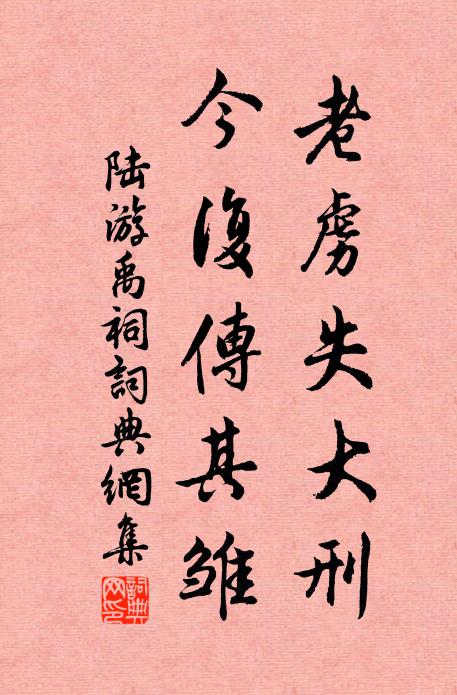 老虜失大刑
今復傳其雛
陸游禹祠詞典網集
詞典網印